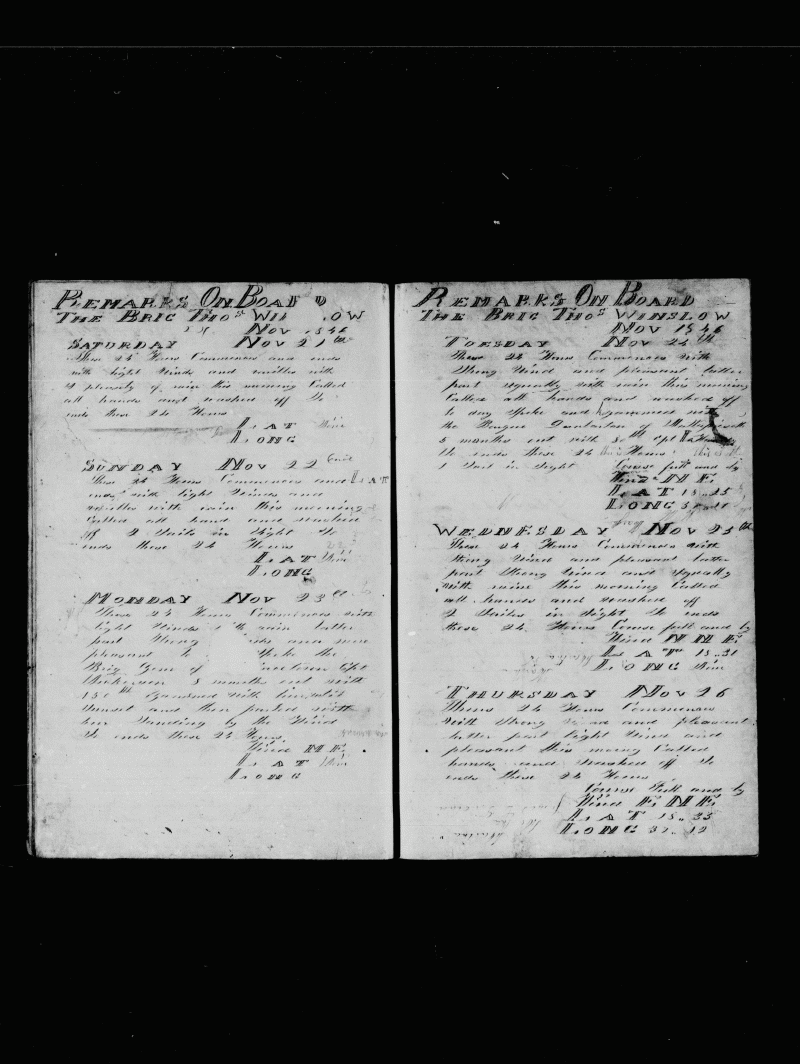 REMARKS ON BOARD
THE BRIG THOS WIN OW
NOV 1846
SATURDAY NOV 21th
These 24 Hours Commences and ends
with light Winds and smilles with
a plenty of rain this morning Called
all hands and washed off So
ends these 24 Hours
LAT
LONG
SUNDAY NOV 22
These 24 Hours Commences and LAT
ends with light Winds and
smilles with rain this morning
Called all hand and washed
off 2 Sails in Sight So
ends these 24 Hours
LAT
LONG
MONDAY NOV 23
These 24 Hours Commences with
light Winds rain latter
part Strong and more
pleasant Spoke the
Brig Gem of Cpt
8 months out with
150 Gammed with him till
Sunset and then parted with
him Standing by the Wind
So ends these 24 Hours
Wind NE
LAT
LONG
REMARKS ON BOARD
THE BRIG THOS WINSLOW
NOV 1846
TUESDAY NOV 24th
These 24 Hours Commences with
Strong Wind and pleasant latter
part squally with rain this morning
Called all hands and washed off
to day Spoke and gammed with
the Barque of
5 months out with Cpt
So ends these 24 Hours
1 Sail in Sight Course full and by
Wind NE
LAT 15..25
LONG
WEDNESDAY NOV 25th
These 24 Hours Commences with
Strong Wind and pleasant latter
part Strong Wind and Squally
with raine this morning Called
all hands and washed off
2 Sailes in Sight So ends
these 24 Hours Course full and by
Wind NNE
LAT 15..31
LONG
THURSDAY NOV 26
Theses 24 Hours Commences
with Strong Wind and pleasant
latter part light Wind and
pleasant this morning Called
hands and washed off So
ends these 24 Hours
Course Full and by
Wind ENE
LAT 15..33
LONG 37..12